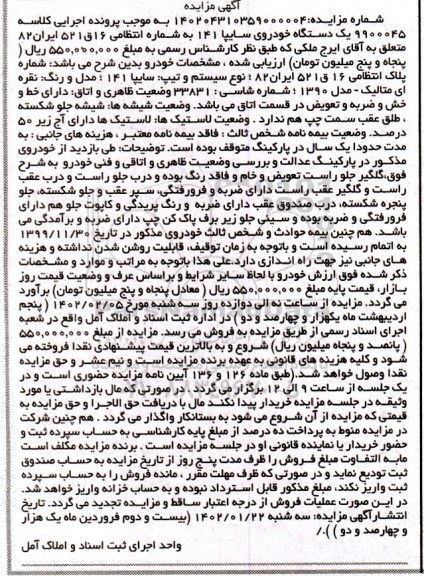 آگهی مزایده
شماره مزایده:۱۴۰۲۰۴۳۱۰۳۵۹۰۰۰۰۰۴ به موجب پرونده اجرایی کلاسه
۹۹۰۰۰۴۵ یک دستگاه خودروی سایپا ۱۴۱ به شماره انتظامی ۱۶ق۵۲۱ ایران۸۲
متعلق به آقای ایرج ملکی که طبق نظر کارشناس رسمی به مبلغ ۵۵۰,۰۰۰,۰۰۰ ریال (
پنجاه و پنج میلیون تومان) ارزیابی شده ، مشخصات خودرو بدین شرح می باشد: شماره
پلاک انتظامی ۱۶ ق۵۲۱ ایران۸۲ : نوع سیستم و تیپ: سایپا ۱۴۱ : مدل و رنگ: نقره
ای متالیک - مدل ۱۳۹۰ : شماره شاسی : ۳۳۸۳۱ وضعیت ظاهری و اتاق: دارای خط و
خش و ضربه و تعویض در قسمت اتاق می باشد. وضعیت شیشه ها: شیشه جلو شکسته
، طلق عقب سمت چپ هم ندارد . وضعیت لاستیک ها: لاستیک ها دارای آج زیر ۵۰
درصد. وضعیت بیمه نامه شخص ثالث : فاقد بیمه نامه معتبر ، هزینه های جانبی : به
مدت حدودا یک سال در پارکینگ متوقف بوده است. توضیحات: طی بازدید از خودروی
مذکور در پارکینگ عدالت و بررسی وضعیت ظاهری و اتاقی و فنی خودرو به شرح
فوق،گلگیر جلو راست تعویض و خام و فاقد رنگ بوده و درب جلو راست و درب عقب
راست و گلگیر عقب راست دارای ضربه و فرورفتگی، سپر عقب و جلو شکسته، جلو
پنجره شکسته، درب صندوق عقب دارای ضربه و رنگ پریدگی و کاپوت جلو هم دارای
فرورفتگی و ضربه بوده و سینی جلو زیر برف پاک کن چپ دارای ضربه و برآمدگی می
باشد. هم چنین بیمه حوادث و شخص ثالث خودروی مذکور در تاریخ ۱۳۹۹/۱۱/۳۰
به اتمام رسیده است و باتوجه به زمان توقیف، قابلیت روشن شدن نداشته و هزینه
های جانبی نیز جهت راه اندازی دارد.علی هذا باتوجه به مراتب و موارد و مشخصات
ذکر شده فوق ارزش خودرو با لحاظ سایر شرایط و براساس عرف و وضعیت قیمت روز
بازار، قیمت پایه مبلغ ۵۵۰,۰۰۰,۰۰۰ ریال (معادل پنجاه و پنج میلیون تومان) برآورد
می گردد. مزایده از ساعت نه الی دوازده روز سه شنبه مورخ ۱۴۰۲/۰۲/۰۵ ( پنجم
اردیبهشت ماه یکهزار و چهارصد و دو) در اداره ثبت اسناد و املاک آمل واقع در شعبه
اجرای اسناد رسمی از طریق مزایده به فروش می رسد. مزایده از مبلغ ۵۵۰,۰۰۰,۰۰۰
( پانصد و پنجاه میلیون ریال) شروع و به بالاترین قیمت پیشنهادی نقدا فروخته می
شود و کلیه هزینه های قانونی به عهده برنده مزایده است و نیم عشر و حق مزایده
نقدا وصول خواهد شد.(طبق ماده ۱۲۶ و ۱۳۶ آیین نامه مزایده حضوری است و در
یک جلسه از ساعت ۹ الی ۱۲ برگزار می گردد) در صورتی که مال بازداشتی یا مورد
وثیقه در جلسه مزایده خریدار پیدا نکند مال با دریافت حق الاجرا و حق مزایده به
قیمتی که مزایده از آن شروع می شود به بستانکار واگذار می گردد . هم چنین شرکت
در مزایده منوط به پرداخت ده درصد از مبلغ پایه کارشناسی به حساب سپرده ثبت و
حضور خریدار یا نماینده قانونی او در جلسه مزایده است . برنده مزایده مکلف است
مابه التفاوت مبلغ فروش را ظرف مدت پنج روز از تاریخ مزایده به حساب صندوق
ثبت تودیع نماید و در صورتی که ظرف مهلت مقرر ، مانده فروش را به حساب سپرده
ثبت واریز نکند، مبلغ مذکور قابل استرداد نبوده و به حساب خزانه واریز خواهد شد.
در این صورت عملیات فروش از درجه اعتبار ساقط و مزایده تجدید می گردد. تاریخ
انتشارآگهی مزایده: سه شنبه ۱۴۰۲/۰۱/۲۲ (بیست و دوم فروردین ماه یک هزار
و چهارصد و دو ) )./
واحد اجرای ثبت اسناد و املاک آمل